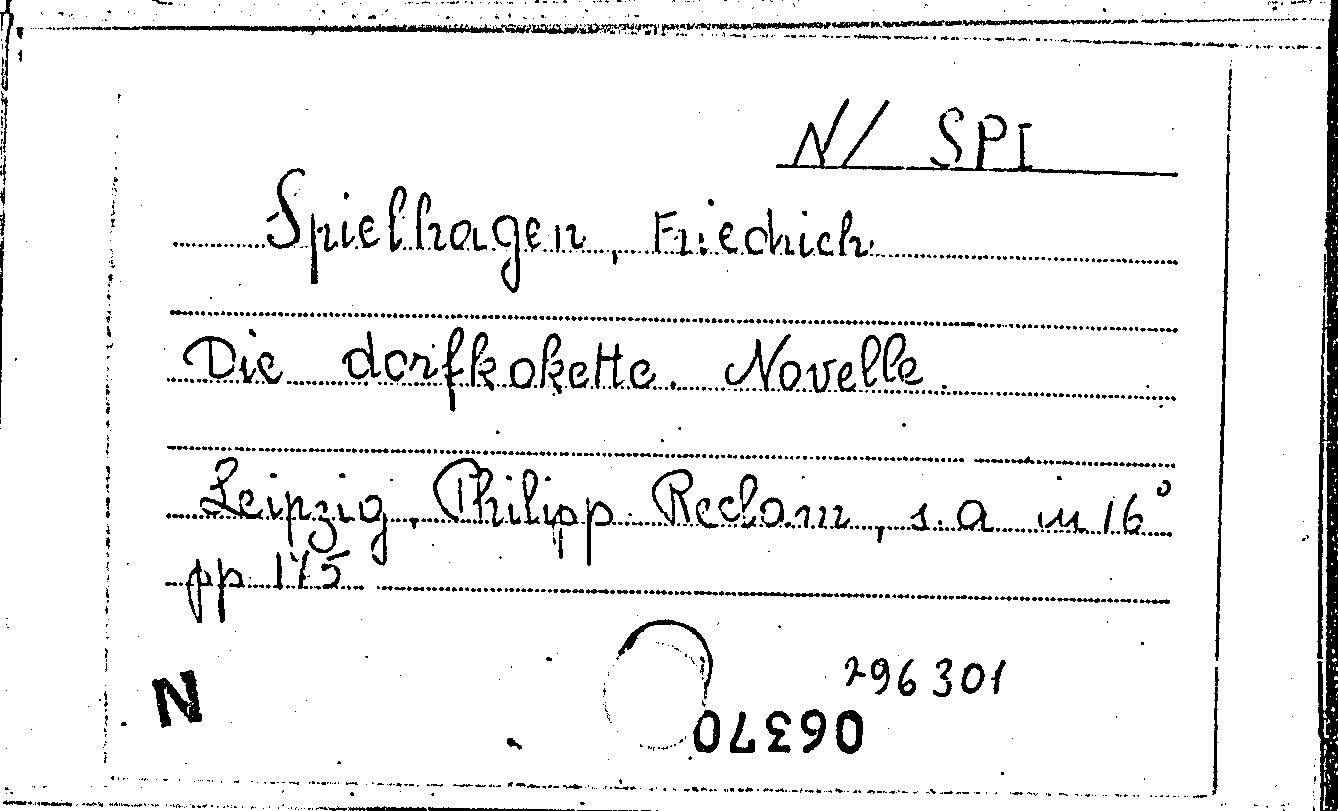 N/ SPI
Spielhagen, Friedrich
Die dorfkokette. Novelle.
Leipzig, Philipp Reclam, s.a in 16°
pp 175
296301
N
06370